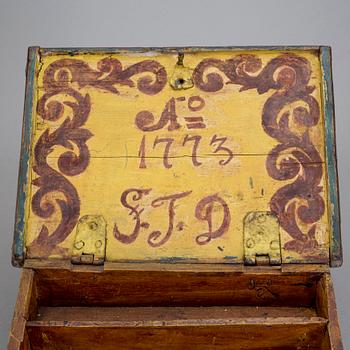 Ao
1773
S.J.D